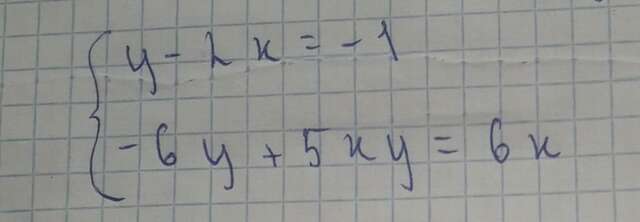 y - 2x = -1
-6y + 5xy = 6x